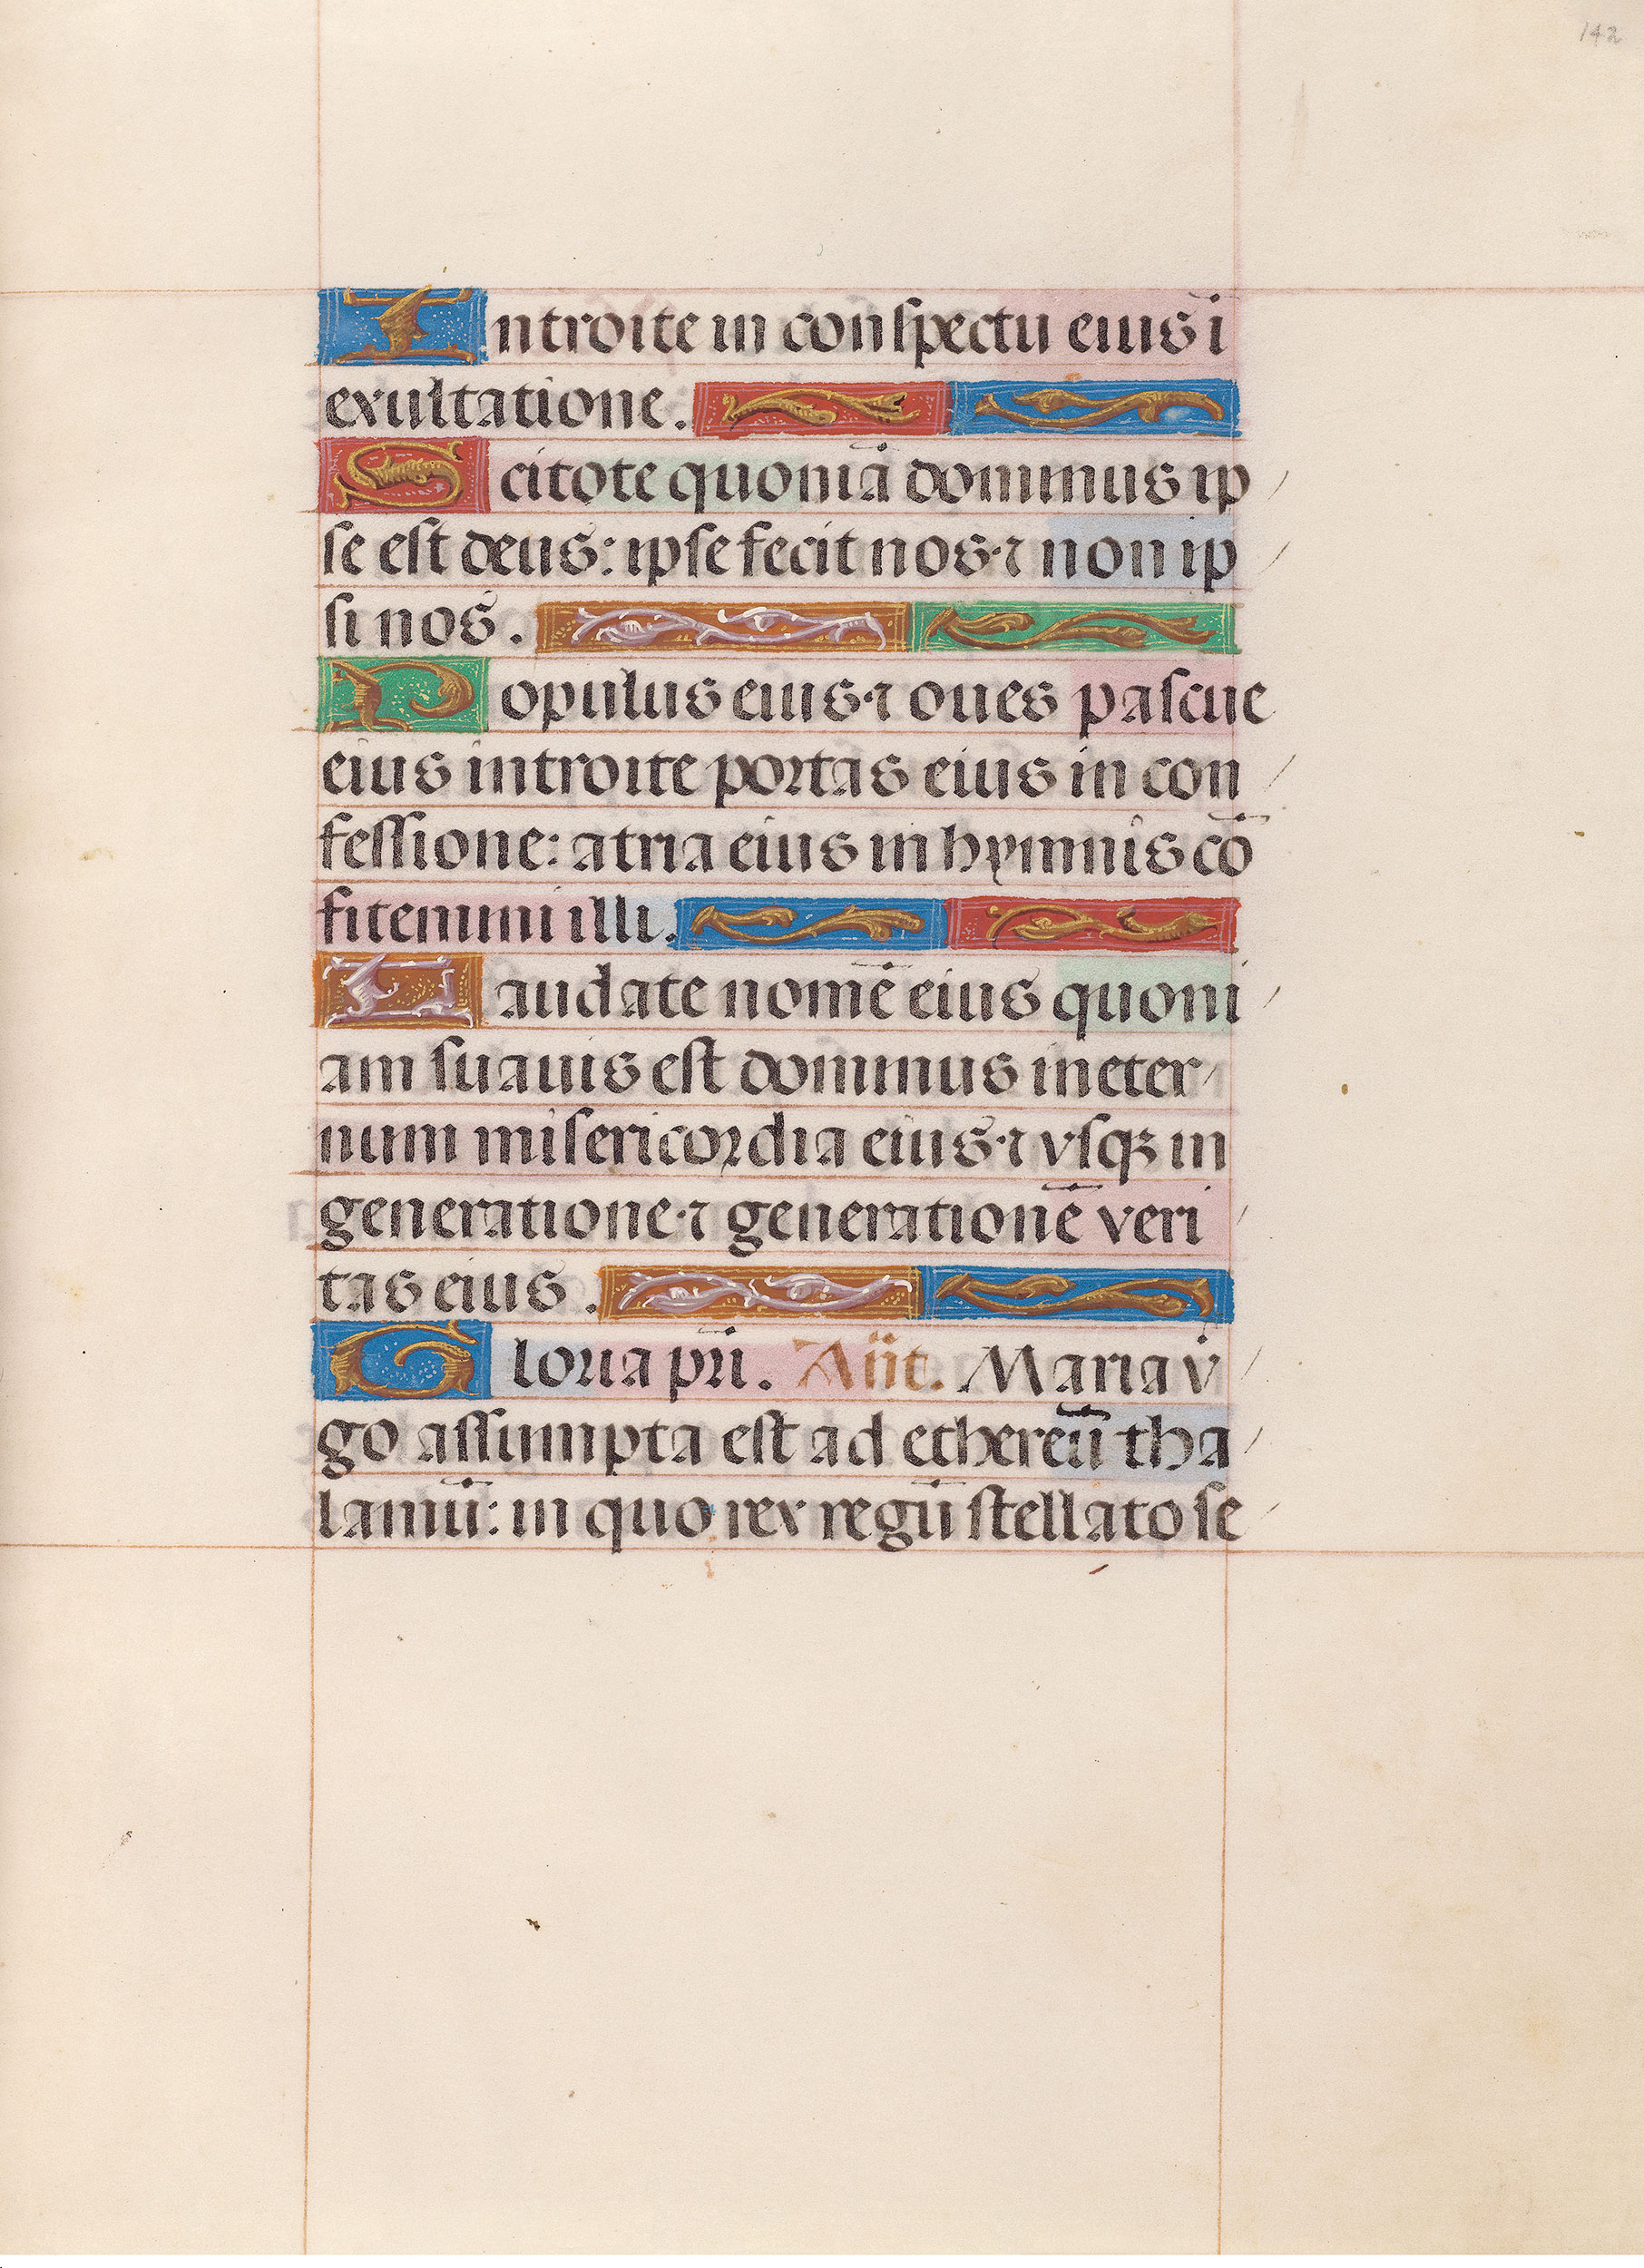 142
Introite in conspectu eius i
exultatione.
Scitote quoniā dominus ip
se est deus: ipse fecit nos·⁊ non ip
si nos.
Populus eius·⁊ oues pascue
eius introite portas eius in con
fessione: atria eius in hymnis cō
fitemini illi.
Laudate nomē eius quoni
am suauis est dominus in eter
num misericordia eius·⁊ vsqꝫ in
generatione·⁊ generationē veri
tas eius.
Gloria pr̄i. An̄t. Maria v̇
go assumpta est ad ethereū tha
lamū: in quo rex regū stellato se